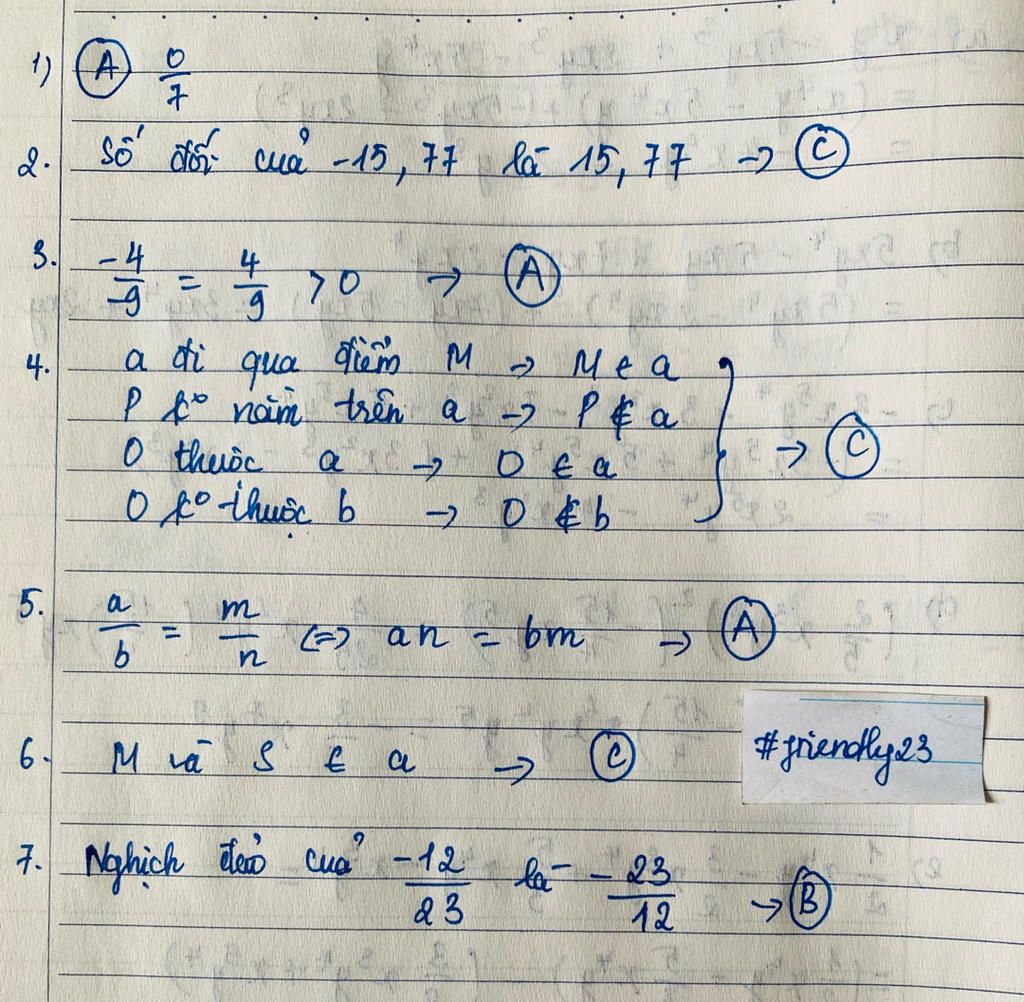 1) A 0/7
2. Số đối của -15,77 là 15,77 → C
3. -4/-9 = 4/9 > 0 → A
4. a đi qua điểm M → M ∈ a
P k° nằm trên a → P ∉ a
O thuộc a → O ∈ a → C
O k° thuộc b → O ∉ b
5. a/b = m/n <=> an = bm → A
6. M và S ∈ a → C
#friendly23
7. Nghịch đảo của -12/23 là -23/12 → B